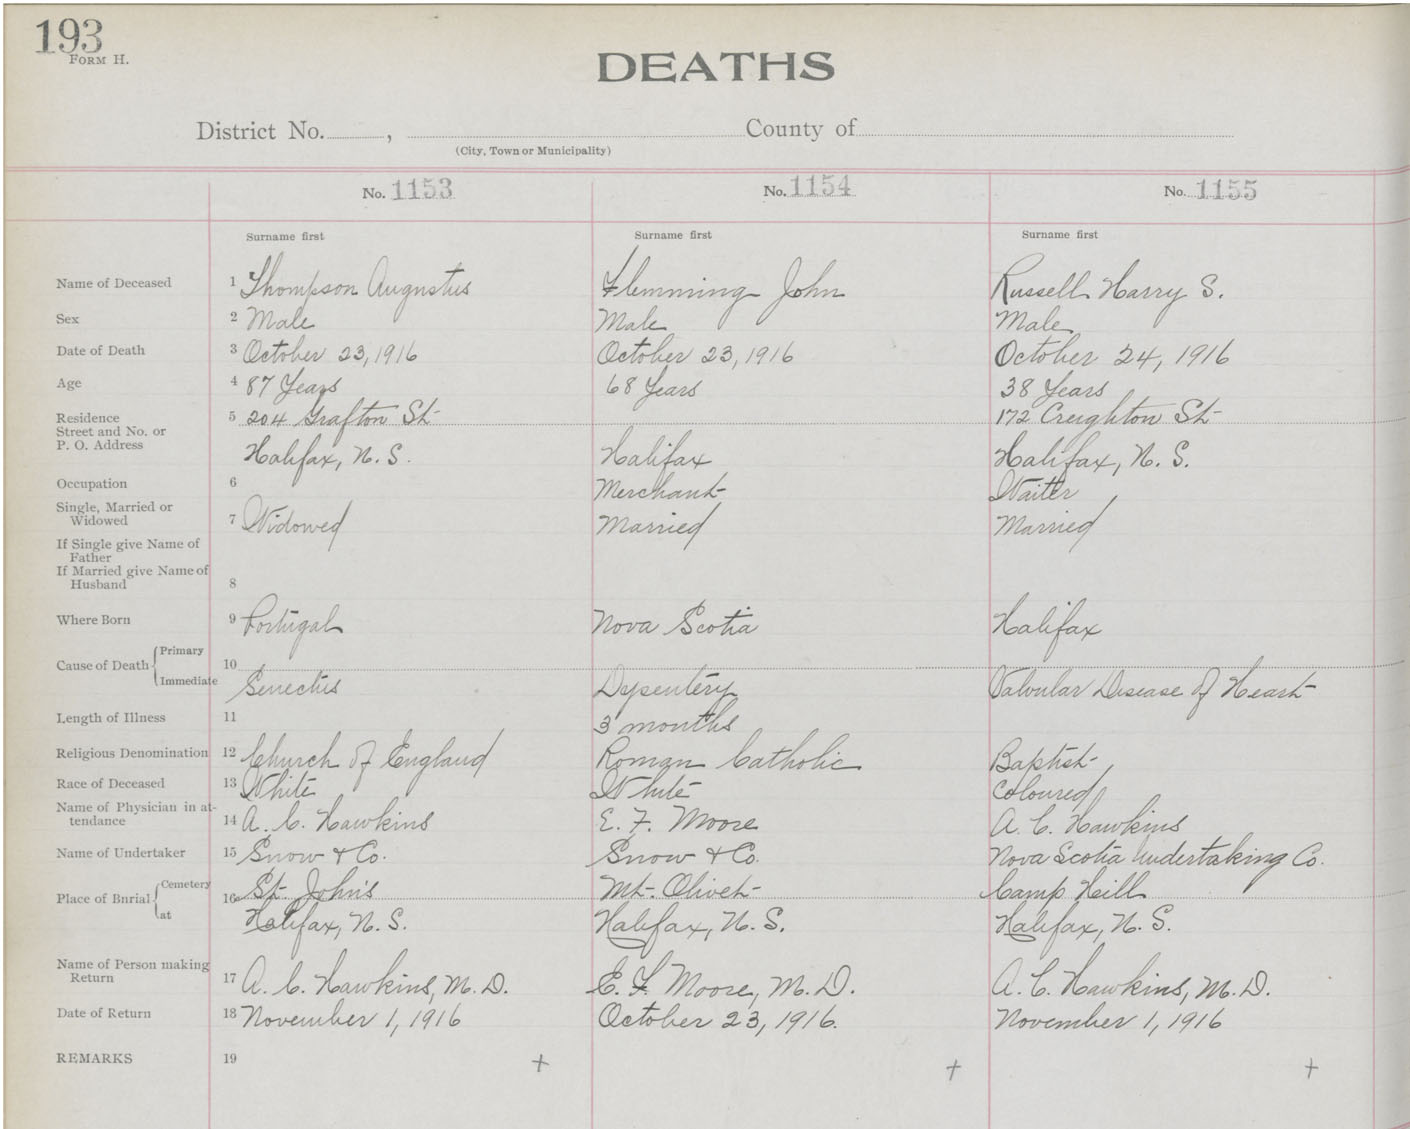 193
FORM H.
DEATHS
District No. , County of
(City, Town or Municipality)
No. 1153 No. 1154 No. 1155
Surname first Surname first Surname first
Name of Deceased 1 Thompson Augustus Flemming John Russell Harry S.
Sex 2 Male Male Male
Date of Death 3 October 23, 1916 October 23, 1916 October 24, 1916
Age 4 87 Years 68 Years 38 Years
Residence 5 204 Grafton St 172 Creighton St
Street and No. or
P. O. Address Halifax, N. S. Halifax Halifax, N. S.
Occupation 6 Merchant Waiter
Single, Married or
Widowed 7 Widowed Married Married
If Single give Name of
Father
If Married give Name of
Husband 8
Where Born 9 Portugal Nova Scotia Halifax
Primary
Cause of Death 10
Immediate Senectus Dysentery Valvular Disease of Heart
Length of Illness 11 3 months
Religious Denomination 12 Church of England Roman Catholic Baptist
Race of Deceased 13 White White Coloured
Name of Physician in at-
tendance 14 A. C. Hawkins E. F. Moore A. C. Hawkins
Name of Undertaker 15 Snow & Co. Snow & Co. Nova Scotia Undertaking Co.
Cemetery St. John's Mt. Olivet Camp Hill
Place of Bnrial 16
at Halifax, N. S. Halifax, N. S. Halifax, N. S.
Name of Person making
Return 17 A. C. Hawkins, M. D. E. F. Moore, M. D. A. C. Hawkins, M. D.
Date of Return 18 November 1, 1916 October 23, 1916. November 1, 1916
REMARKS 19 + + +